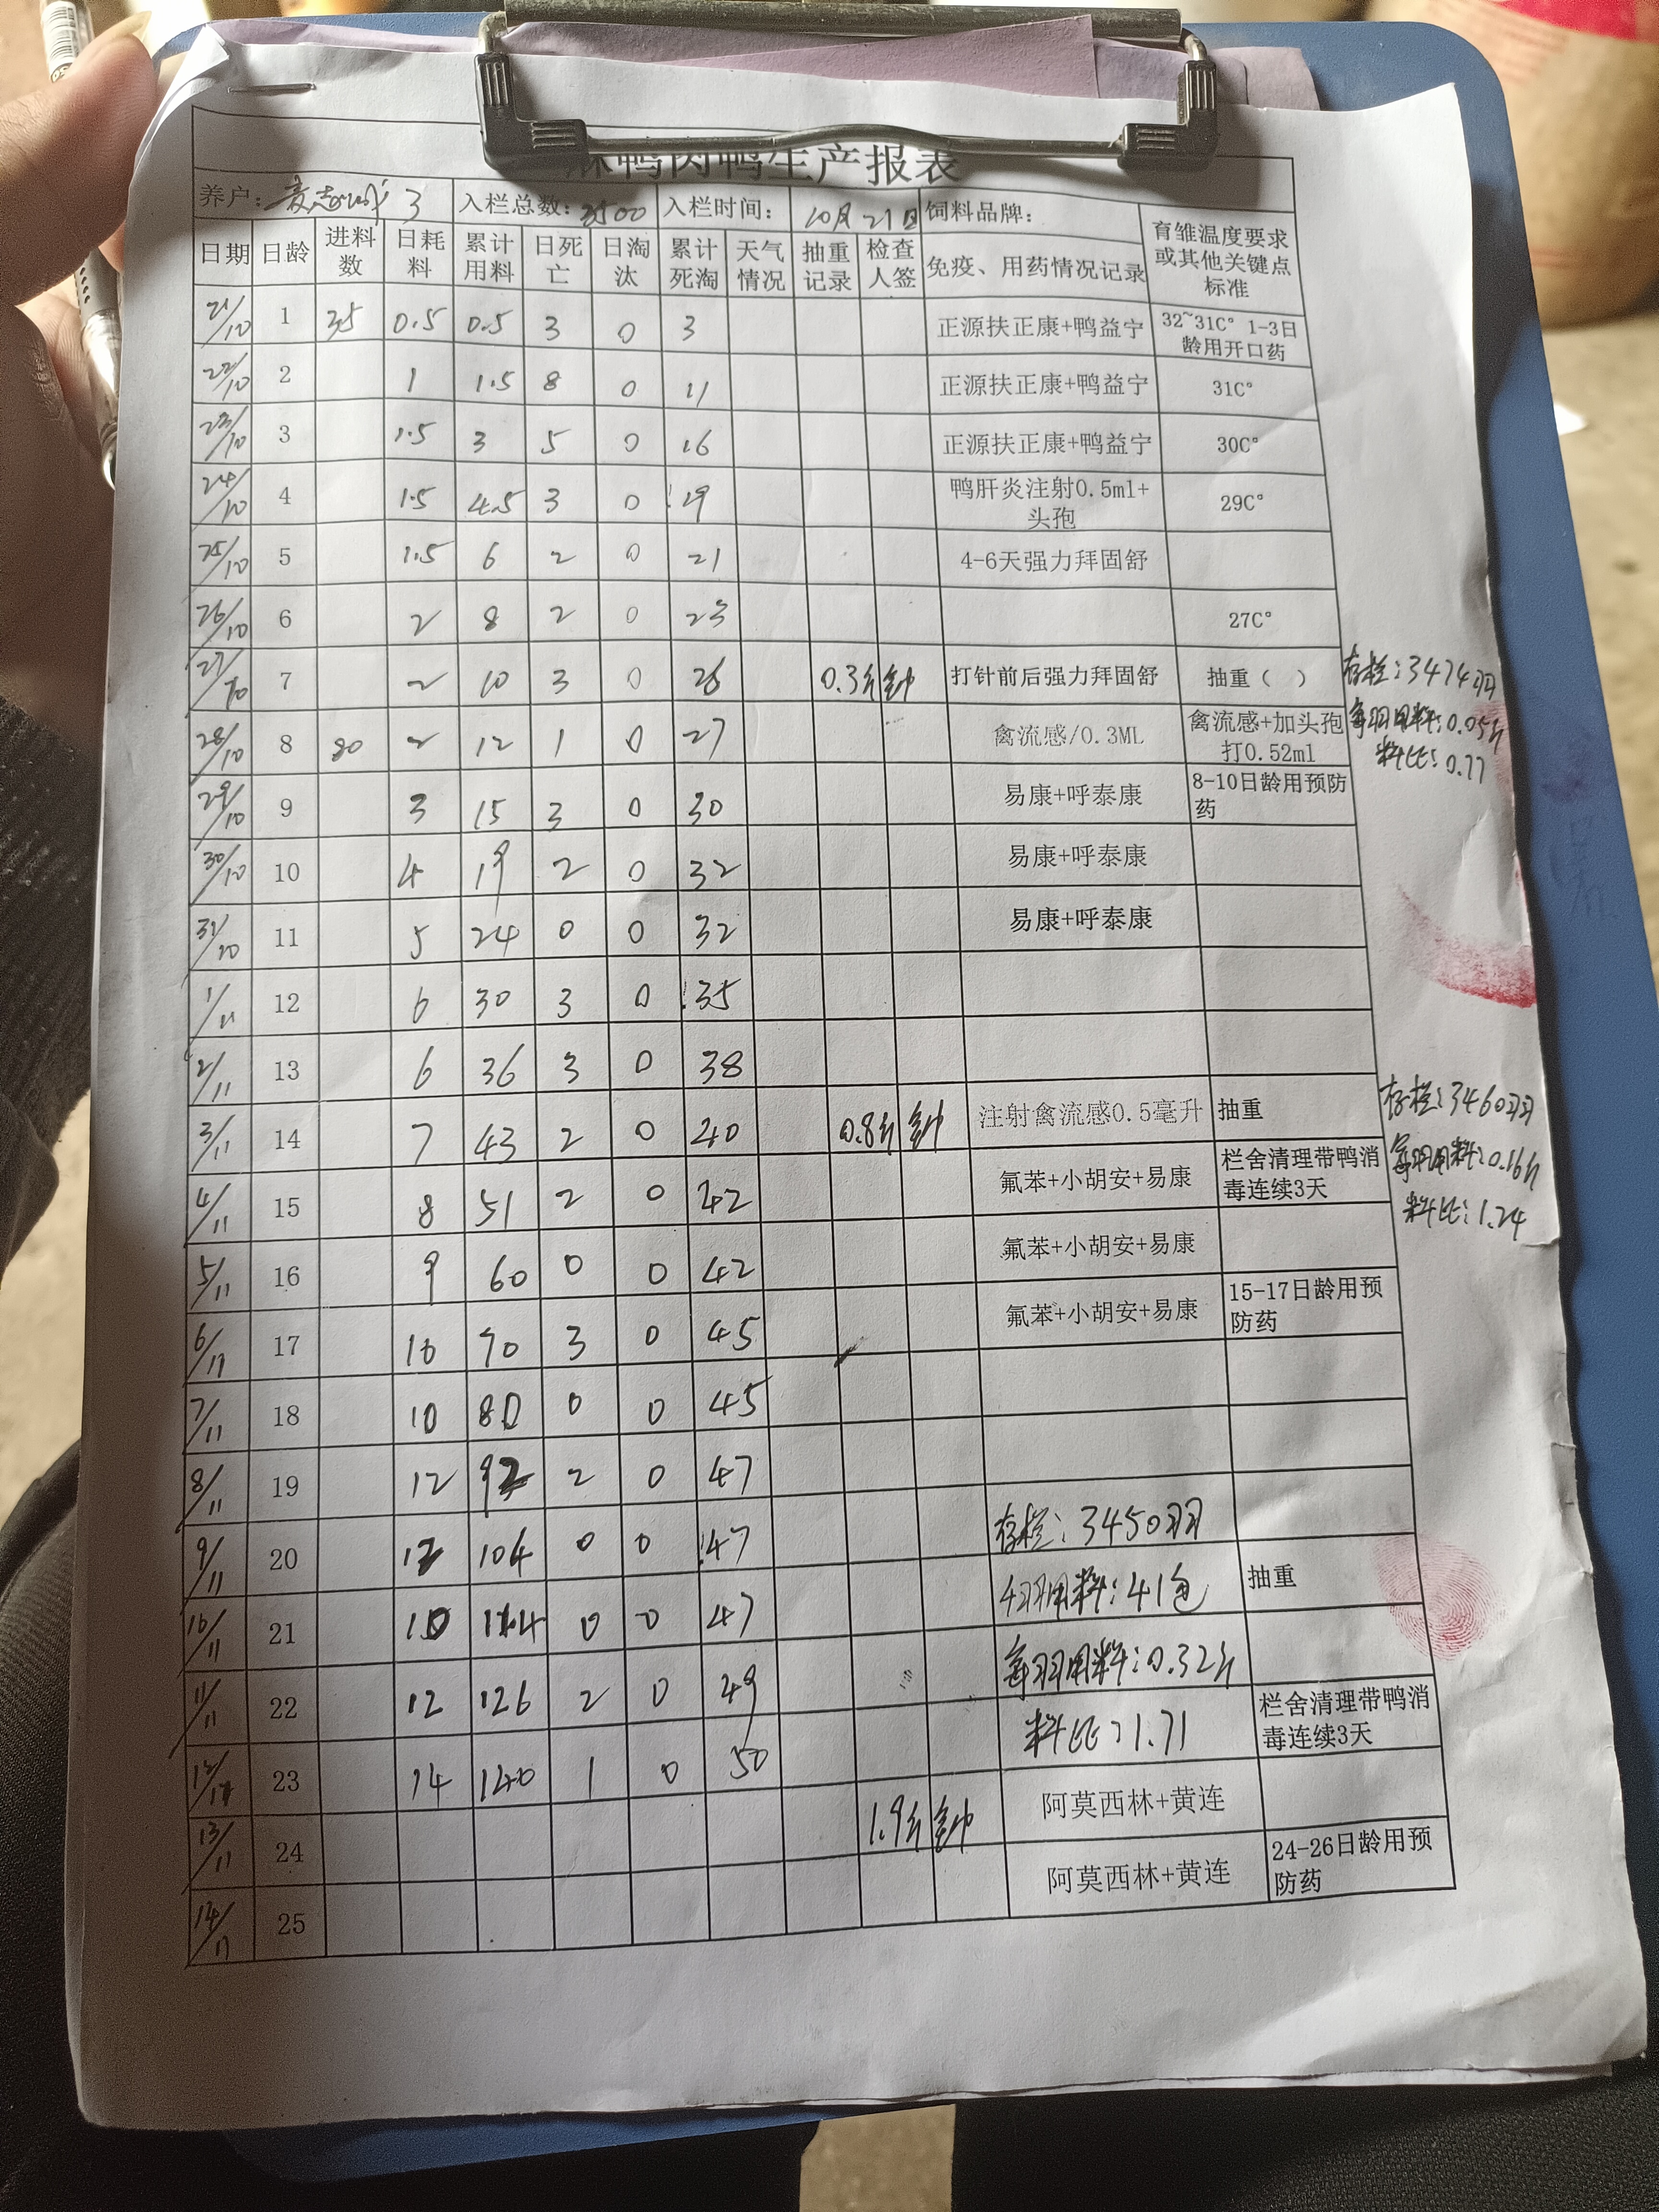 鸭肉鸭生产报表
养户： 3 入栏总数：3500 入栏时间：10月21日 饲料品牌： 育雏温度要求或其他关键点标准
日期 日龄 进料数 日耗料 累计用料 日死亡 日淘汰 累计死淘 天气情况 抽重记录 检查人签 免疫、用药情况记录
21/10 1 35 0.5 0.5 3 0 3 正源扶正康+鸭益宁 32~31C° 1-3日龄用开口药
22/10 2 1 1.5 8 0 11 正源扶正康+鸭益宁 31C°
23/10 3 1.5 3 5 0 16 正源扶正康+鸭益宁 30C°
24/10 4 1.5 4.5 3 0 19 鸭肝炎注射0.5ml+头孢 29C°
25/10 5 1.5 6 2 0 21 4-6天强力拜固舒
26/10 6 2 8 2 0 23 27C°
27/10 7 2 10 3 0 26 0.3斤 打针前后强力拜固舒 抽重（ ） 存栏：3474羽
28/10 8 80 2 12 1 0 27 禽流感/0.3ML 禽流感+加头孢打0.52ml 每羽用料：0.05斤
料比：0.77
29/10 9 3 15 3 0 30 易康+呼泰康 8-10日龄用预防药
30/10 10 4 19 2 0 32 易康+呼泰康
31/10 11 5 24 0 0 32 易康+呼泰康
1/11 12 6 30 3 0 35
2/11 13 6 36 3 0 38
3/11 14 7 43 2 0 40 0.8斤 注射禽流感0.5毫升 抽重 存栏：3460羽
4/11 15 8 51 2 0 42 氟苯+小胡安+易康 栏舍清理带鸭消毒连续3天 每羽用料：0.16斤
料比：1.24
5/11 16 9 60 0 0 42 氟苯+小胡安+易康
6/11 17 10 70 3 0 45 氟苯+小胡安+易康 15-17日龄用预防药
7/11 18 10 80 0 0 45
8/11 19 12 92 2 0 47
9/11 20 12 104 0 0 47 存栏：3450羽
10/11 21 10 114 0 0 47 用料：41包 抽重
11/11 22 12 126 2 0 49 每羽用料：0.32斤
12/11 23 14 140 1 0 50 料比：1.71 栏舍清理带鸭消毒连续3天
13/11 24 1.9斤 阿莫西林+黄连
14/11 25 阿莫西林+黄连 24-26日龄用预防药